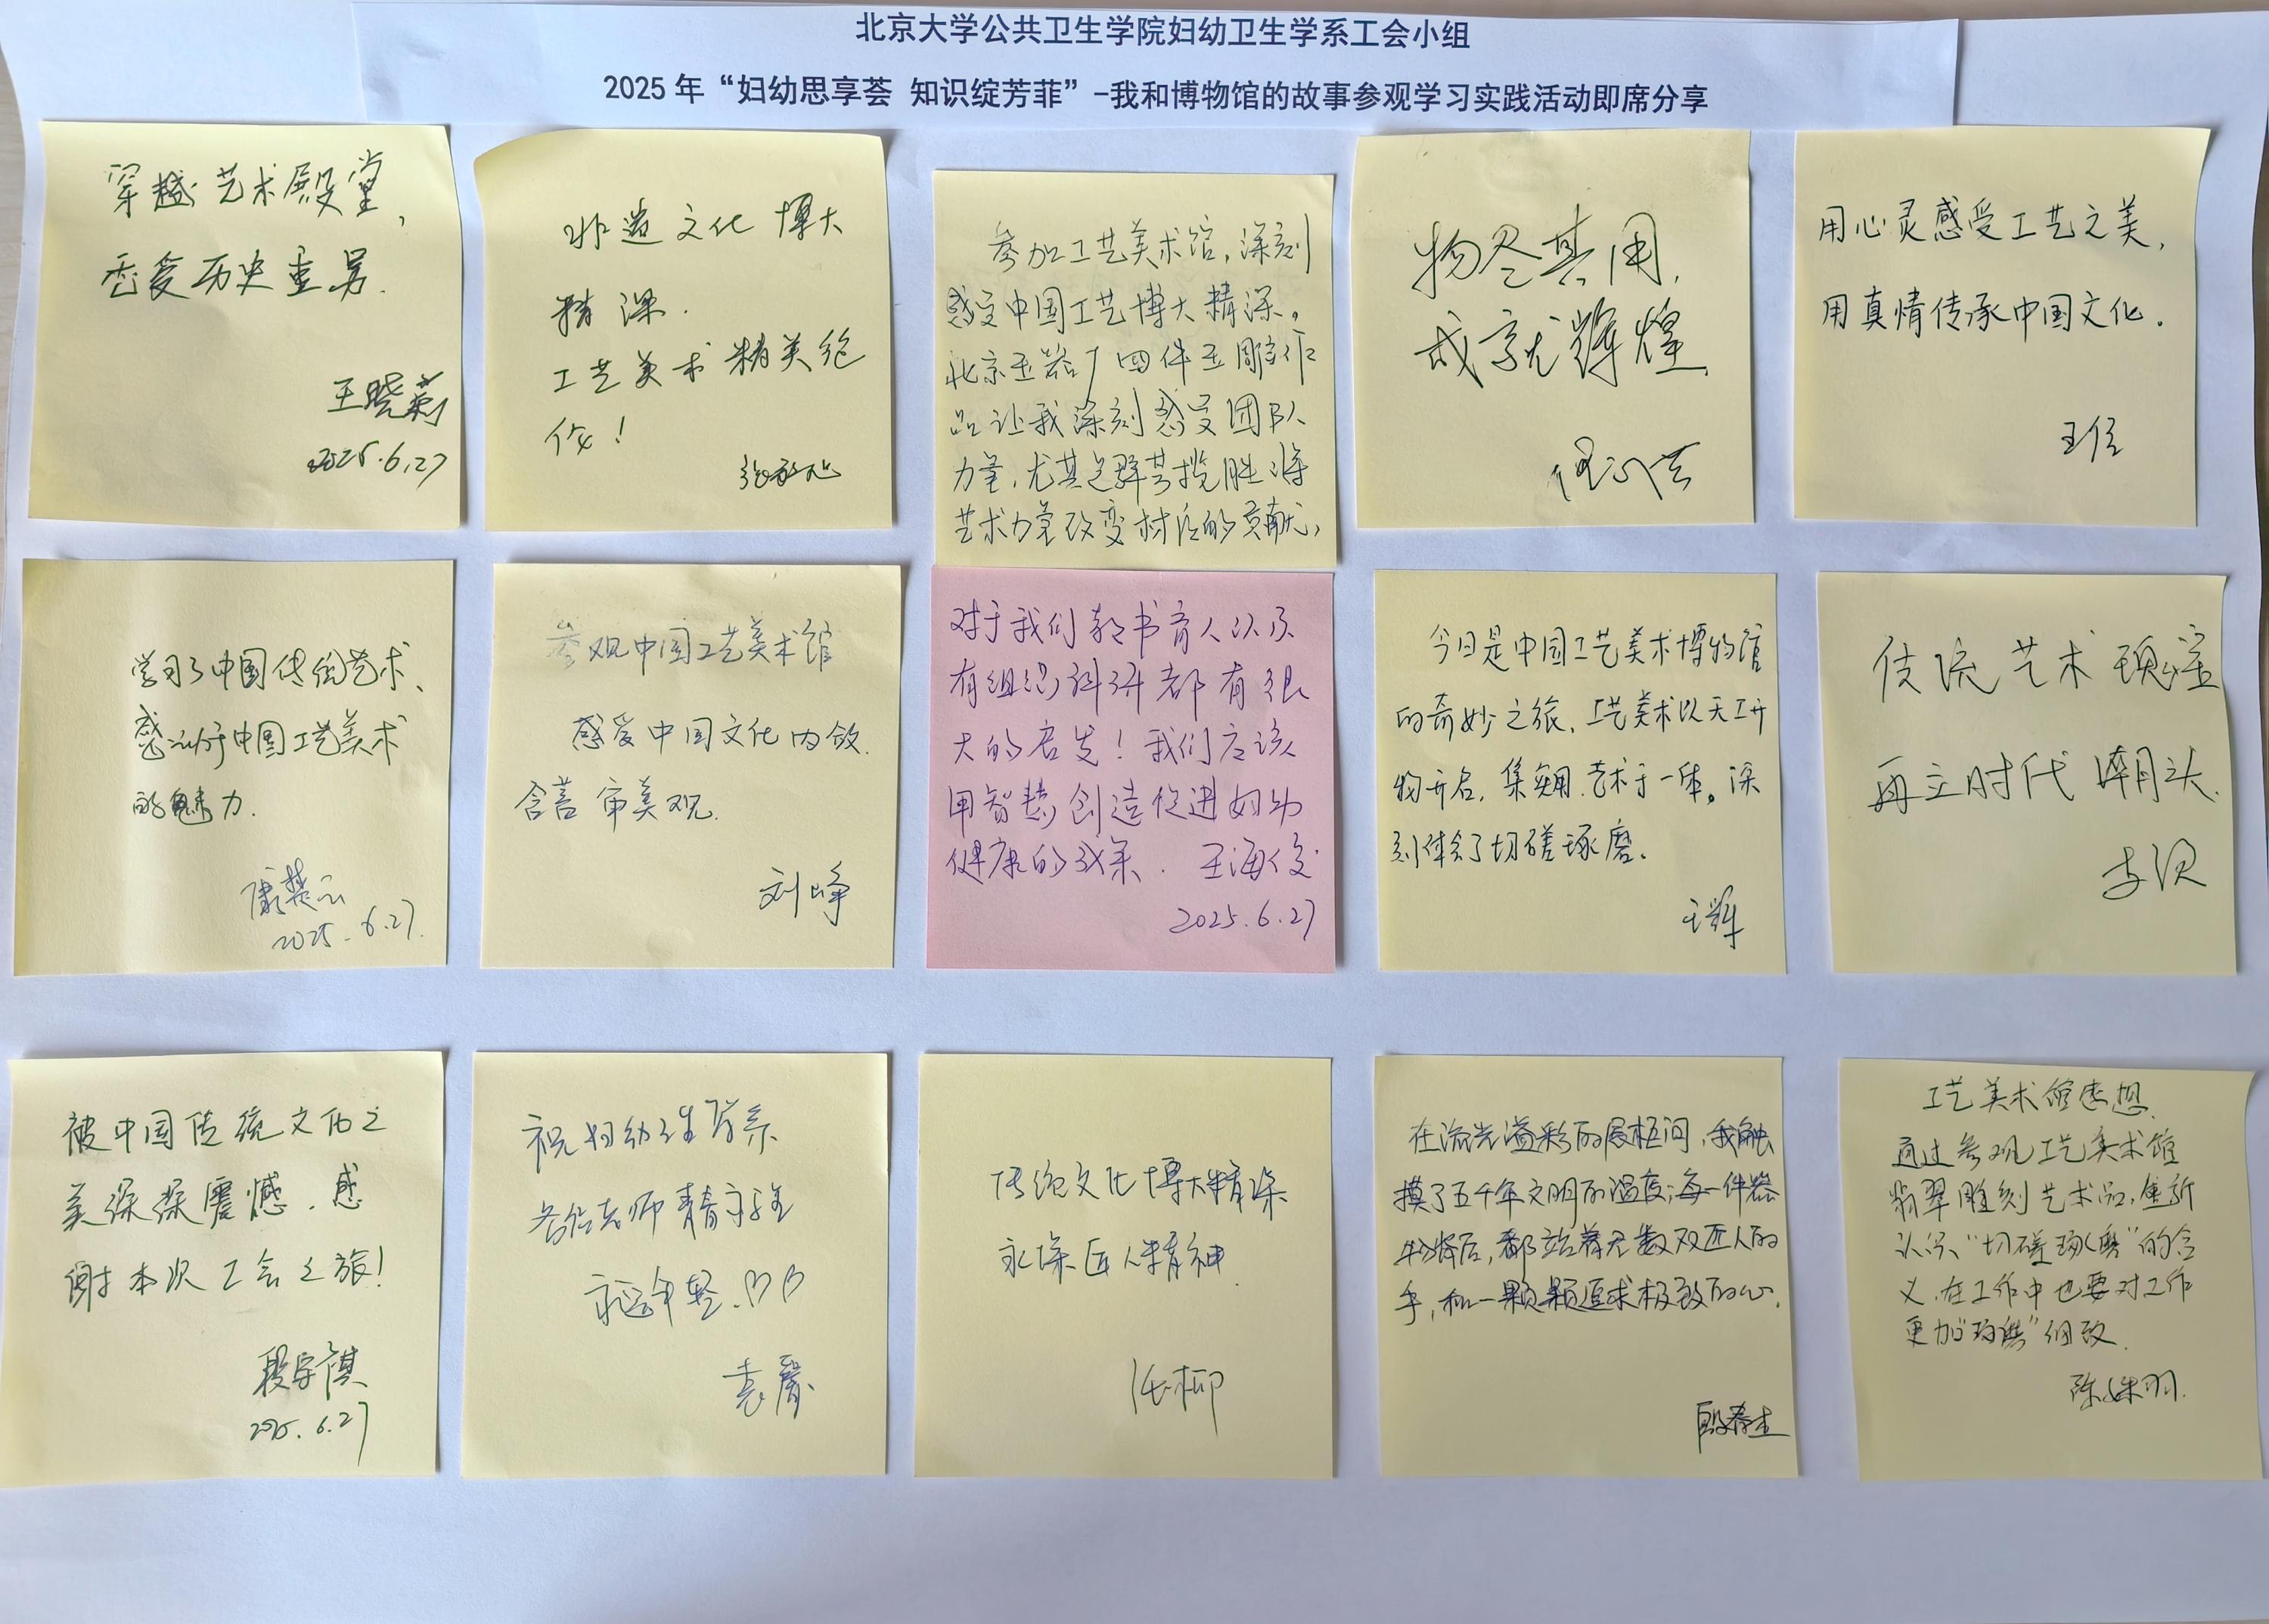 北京大学公共卫生学院妇幼卫生学系工会小组
2025年“妇幼思享荟 知识绽芳菲”-我和博物馆的故事参观学习实践活动即席分享
穿越艺术殿堂,
历史重
王晓莉
2025.6.27
非遗文化博大
精深.
工艺美术精美绝
伦!
参加工艺美术馆,深刻
感受中国工艺博大精深。
北京玉器厂四件玉雕作
品让我深刻感受团队
力量,尤其是群芳揽胜将
艺术力量改变材质的贡献,
物尽其用,
成就辉煌
用心灵感受工艺之美,
用真情传承中国文化.
学习了中国传统艺术、
感动于中国工艺美术
的魅力.
康楚云
2025.6.27.
参观中国工艺美术馆
感受中国文化内敛.
含蓄审美观.
刘峥
对于我们教书育人以及
有组织科研都有很
大的启发!我们应该
用智慧创造促进妇幼
健康的成果. 王海俊
2025.6.27
今日是中国工艺美术博物馆
的奇妙之旅,工艺美术以天工开
物开启,集实用、艺术于一体。深
刻体会了切磋琢磨。
王辉
传统艺术瑰宝
再立时代潮头.
被中国传统文化之
美深深震憾,感
谢本次工会之旅!
段宇祺
2025.6.27
祝妇幼卫生学系
各位老师青春永驻
永远年轻.
袁雁
传统文化博大精深
永葆匠人精神.
任柳
在流光溢彩的展柜间,我触
摸了五千年文明的温度;每一件器
物背后,都站着无数双匠人的
手,和一颗颗追求极致的心.
殷春生
工艺美术馆感想.
通过参观工艺美术馆
翡翠雕刻艺术品,重新
认识“切磋琢磨”的含
义,在工作中也要对工作
更加“琢磨”细致.
陈姝羽.